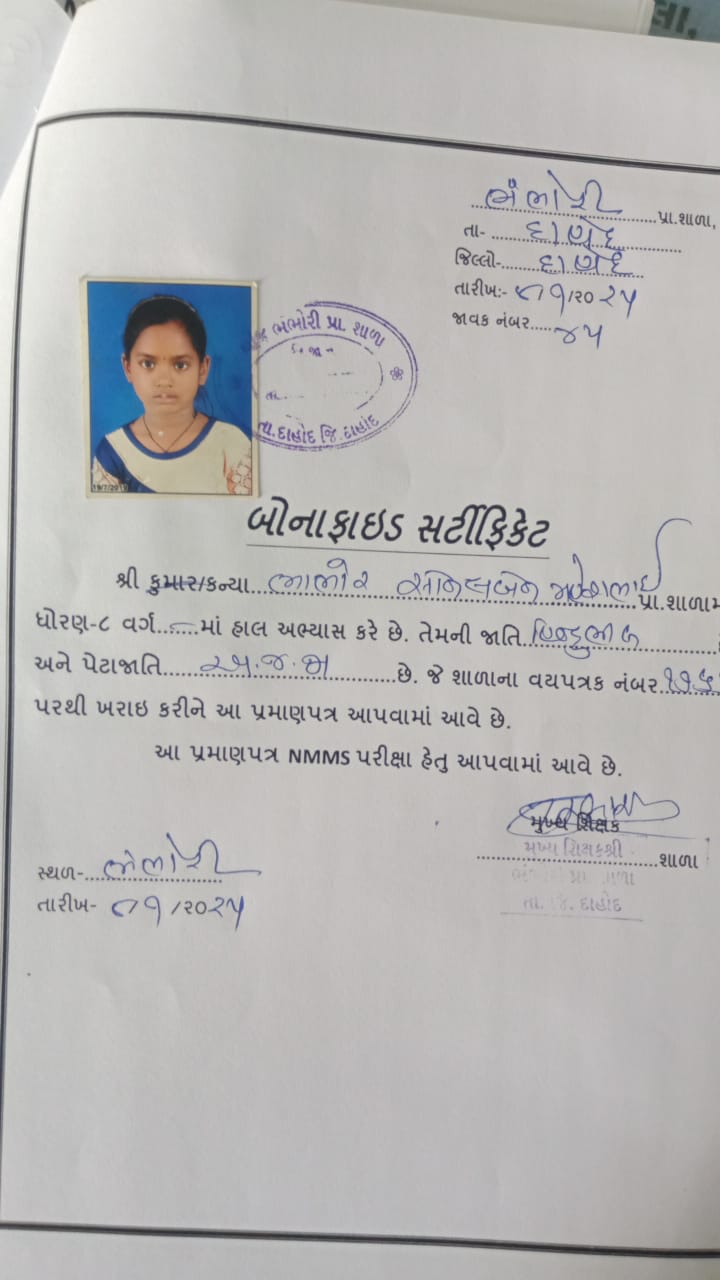 ભંભોરી પ્રા.શાળા,
તા- દાહોદ
જિલ્લો- દાહોદ
તારીખ:- /૨૦ ૨૫
જાવક નંબર..... ૪૫
ભંભોરી પ્રા. શાળા
તા.દાહોદ જિ.દાહોદ
બોનાફાઇડ સર્ટીફિકેટ
શ્રી કુમાર/કન્યા ભાભોર પ્રા.શાળામ
ધોરણ-૮ વર્ગ માં હાલ અભ્યાસ કરે છે. તેમની જાતિ હિન્દુભીલ
અને પેટાજાતિ અ.જ.જા છે. જે શાળાના વયપત્રક નંબર
પરથી ખરાઇ કરીને આ પ્રમાણપત્ર આપવામાં આવે છે.
આ પ્રમાણપત્ર NMMS પરીક્ષા હેતુ આપવામાં આવે છે.
મુખ્ય શિક્ષક
મુખ્ય શિક્ષકશ્રી
શાળા
સ્થળ- ભંભોરી
તારીખ- /૨૦૨૫